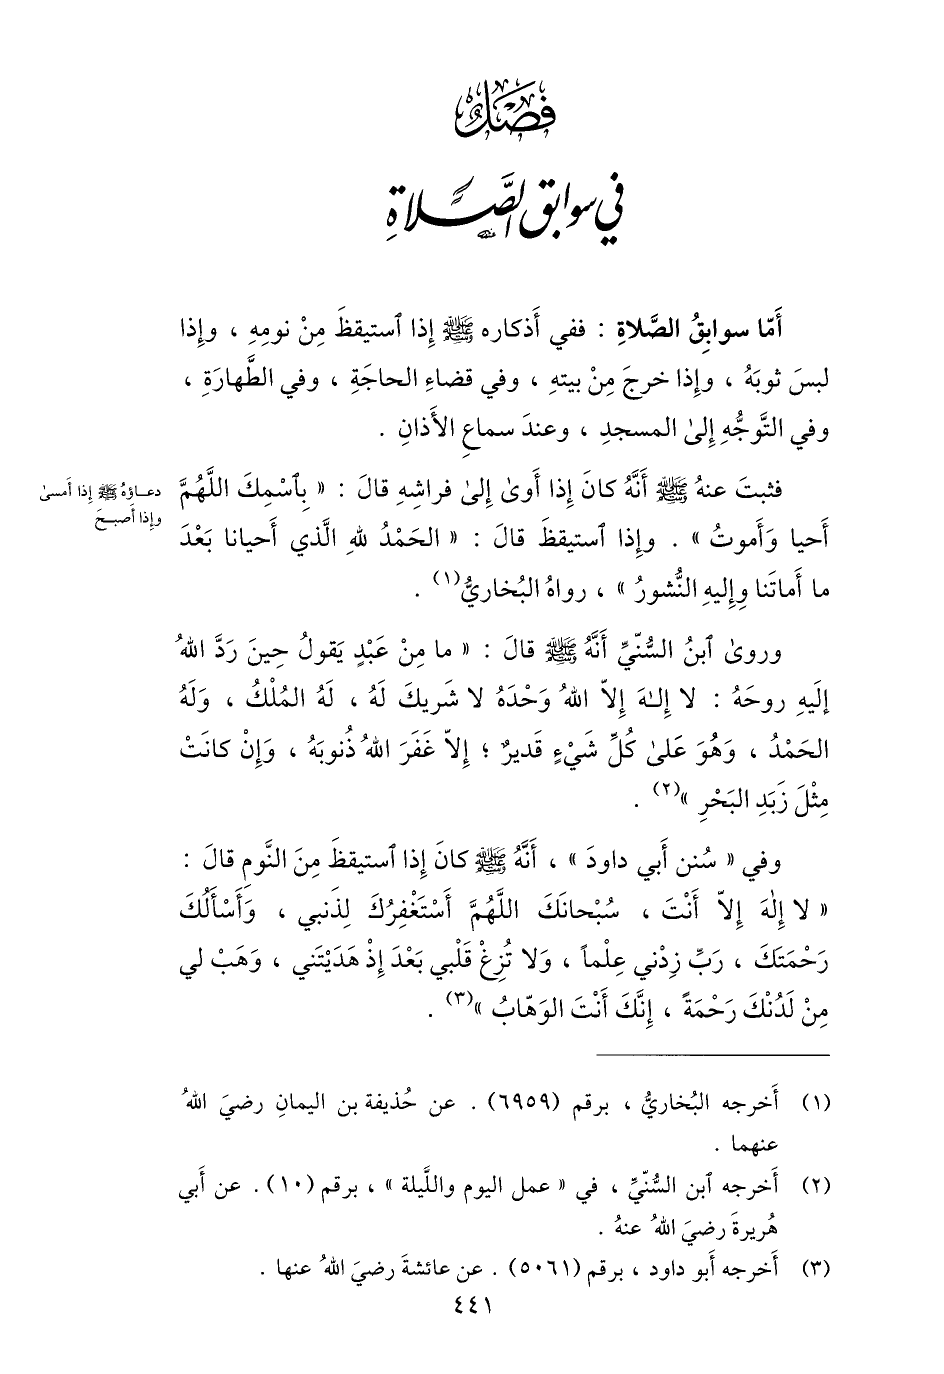 فَصْلٌ
في سوابق الصَّلاةِ
أَمّا سوابِقُ الصَّلاةِ : ففي أَذكاره ﷺ إِذا ٱستيقظَ مِنْ نومِهِ ، وإِذا
لبسَ ثوبَهُ ، وإِذا خرجَ مِنْ بيتهِ ، وفي قضاءِ الحاجَةِ ، وفي الطَّهارَةِ ،
وفي التَّوجُّهِ إِلىٰ المسجدِ ، وعندَ سماعِ الأَذانِ .
فثبتَ عنهُ ﷺ أَنَّهُ كانَ إِذا أَوىٰ إِلىٰ فراشِهِ قالَ : « بِٱسْمِكَ اللَّهُمَّ
أَحيا وَأَموتُ » . وإِذا ٱستيقظَ قالَ : « الحَمْدُ للهِ الَّذي أَحيانا بَعْدَ
ما أَماتَنا وإِليهِ النُّشورُ » ، رواهُ البُخاريُّ(١) .
دعاؤهُ ﷺ إِذا أَمسىٰ
وإِذا أَصبحَ
وروىٰ ٱبنُ السُّنّيِّ أَنَّهُ ﷺ قالَ : « ما مِنْ عَبْدٍ يَقولُ حِينَ رَدَّ اللهُ
إِلَيهِ روحَهُ : لا إِلـٰهَ إِلاّ اللهُ وَحْدَهُ لا شَريكَ لَهُ ، لَهُ المُلْكُ ، وَلَهُ
الحَمْدُ ، وَهُوَ عَلىٰ كُلِّ شَيْءٍ قَديرٌ ؛ إِلاّ غَفَرَ اللهُ ذُنوبَهُ ، وَإِنْ كانَتْ
مِثْلَ زَبَدِ البَحْرِ »(٢) .
وفي « سُنن أَبي داودَ » ، أَنَّهُ ﷺ كانَ إِذا ٱستيقظَ مِنَ النَّومِ قالَ :
« لا إِلٰهَ إِلاّ أَنْتَ ، سُبْحانَكَ اللَّهُمَّ أَسْتَغْفِرُكَ لِذَنبي ، وَأَسْأَلُكَ
رَحْمَتَكَ ، رَبِّ زِدْني عِلْماً ، وَلا تُزِغْ قَلْبي بَعْدَ إِذْ هَدَيْتَني ، وَهَبْ لي
مِنْ لَدُنْكَ رَحْمَةً ، إِنَّكَ أَنْتَ الوَهّابُ »(٣) .
(١) أَخرجه البُخاريُّ ، برقم (٦٩٥٩) . عن حُذيفة بن اليمانِ رضيَ اللهُ
عنهما .
(٢) أَخرجه ٱبن السُّنّيِّ ، في « عمل اليوم واللَّيلة » ، برقم (١٠) . عن أَبي
هُريرةَ رضيَ اللهُ عنهُ .
(٣) أَخرجه أَبو داود ، برقم (٥٠٦١) . عن عائشةَ رضيَ اللهُ عنها .
٤٤١